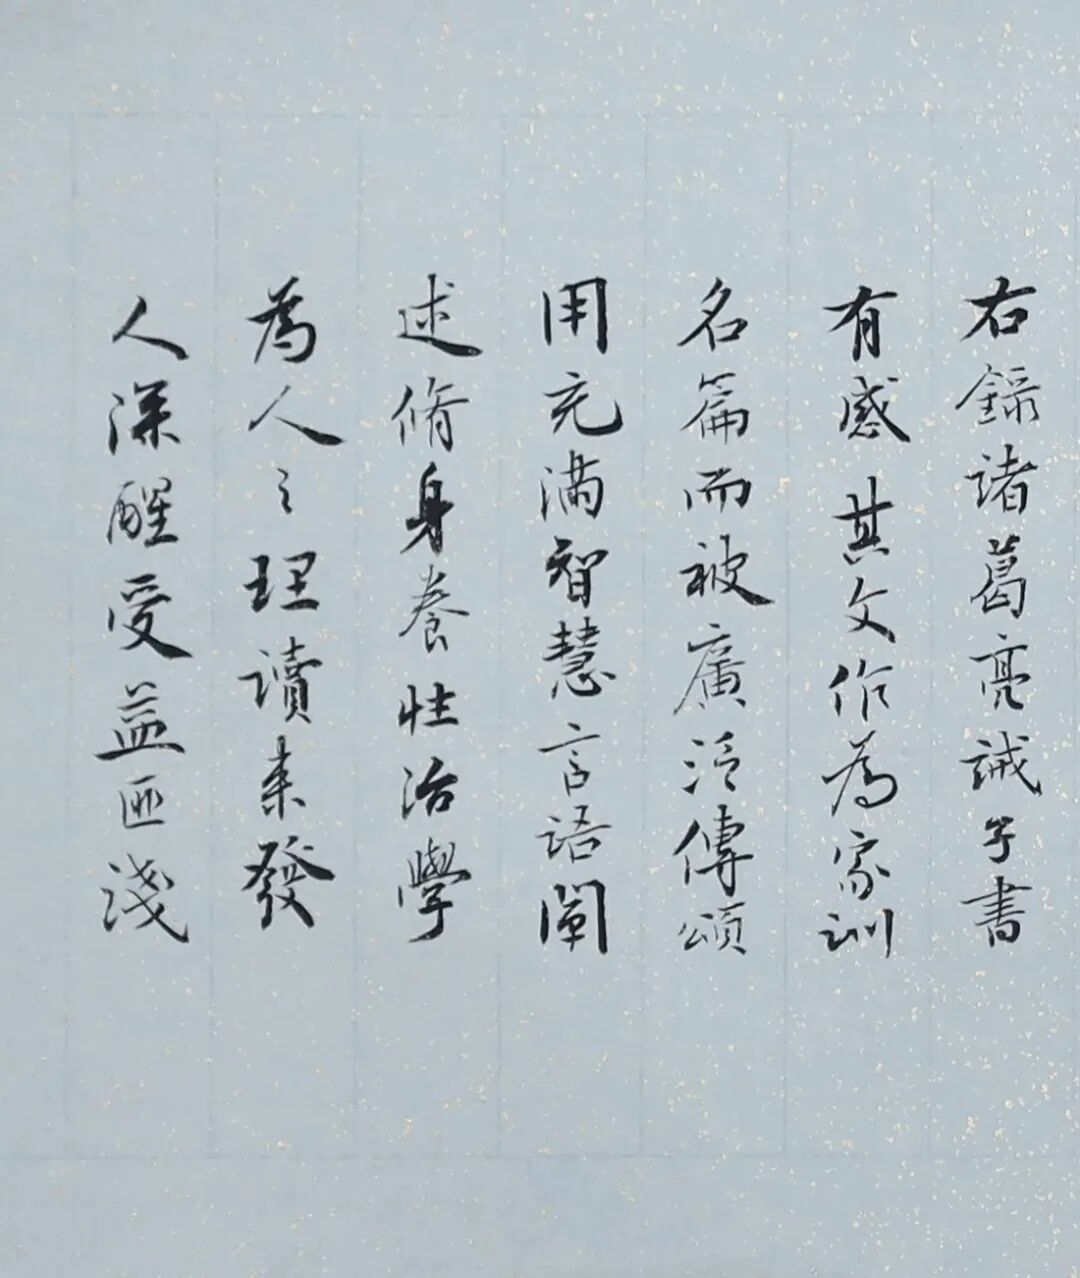 右録諸葛亮誡子書
有感其文作為家訓
名篇而被廣泛傳頌
用充滿智慧言語闡
述脩身養性治學
為人之理讀来發
人深醒受益匪淺